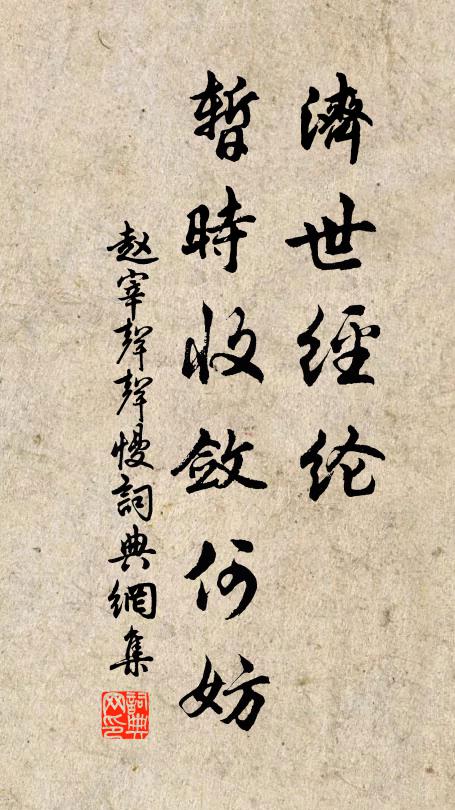 濟世經纶
暫時收斂何妨
赵宰聲聲慢詞典網集
詞典网印